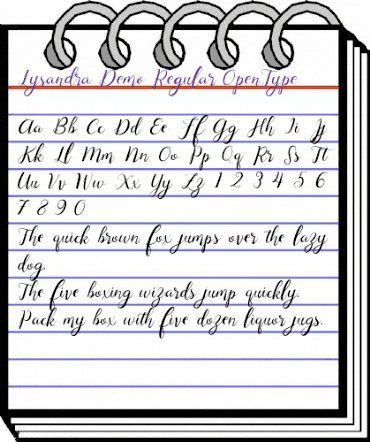 Lysandra Demo Regular OpenType
Aa Bb Cc Dd Ee Ff Gg Hh Ii Jj
Kk Ll Mm Nn Oo Pp Qq Rr Ss Tt
Uu Vv Ww Xx Yy Zz 1 2 3 4 5 6
7 8 9 0
The quick brown fox jumps over the lazy
dog.
The five boxing wizards jump quickly.
Pack my box with five dozen liquor jugs.